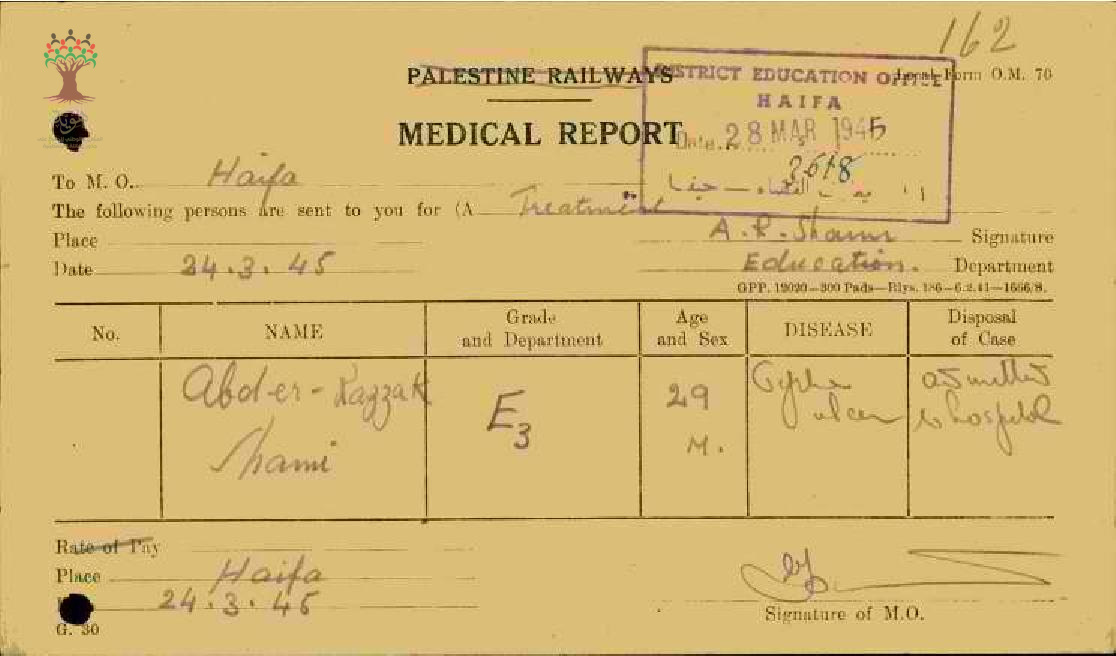 162
PALESTINE RAILWAYS
Local Form O.M. 70
DISTRICT EDUCATION OFFICE
HAIFA
MEDICAL REPORT
Date 28 MAR 1945
3618
To M. O. Haifa
The following persons are sent to you for (A Treatment
Place
A. R. Shami Signature
Date 24.3.45
Education. Department
GPP. 19020—300 Pads—Rlys. 186—6.2.41—1666/8.
No. NAME Grade and Department Age and Sex DISEASE Disposal of Case
Abd-er-Razzak Shami E3 29 M. ulcer admitted to hospital
Rate of Pay
Place Haifa
24.3.45
Signature of M.O.
G. 30